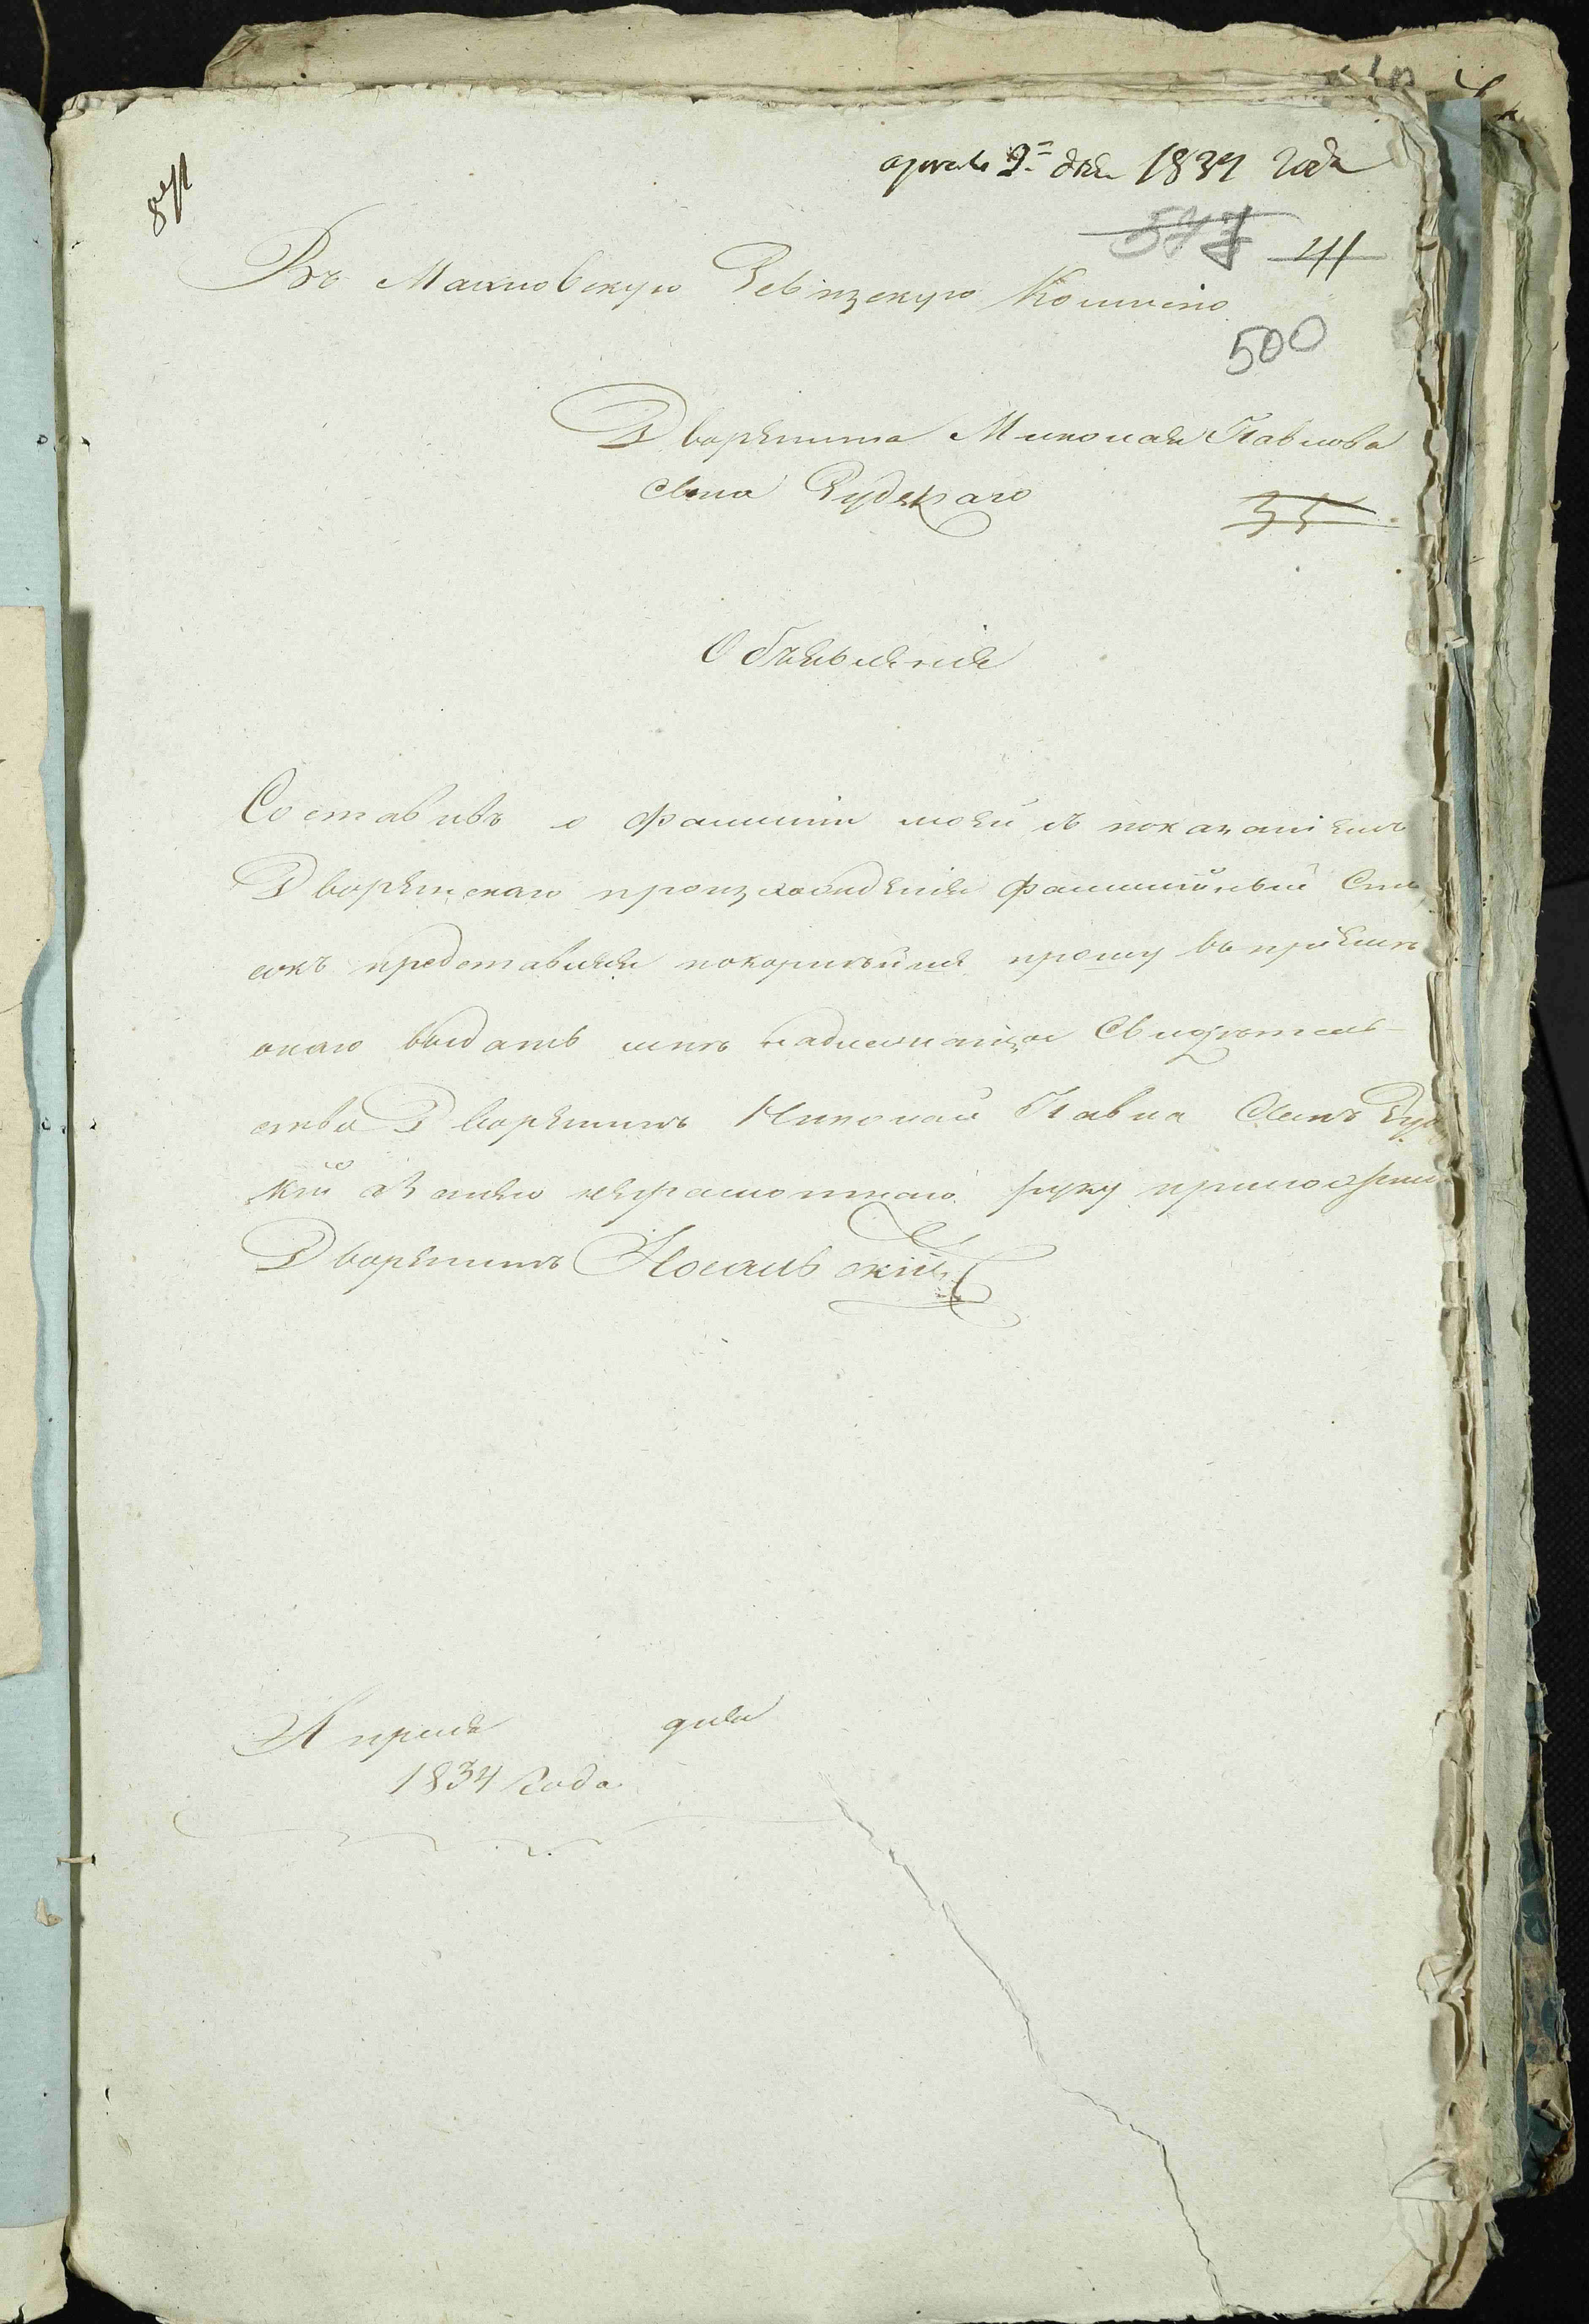 апреля 2= дня 1834 года
577 41
Въ Махновскую Ревизскую Комисію
500
Дворянина Миколая Павлова
сына Рудскаго
35
Объявленія
Составивъ о фамиліи моей съ показаніемъ
Дворянскаго произхожденія фамилійный Спи
сокъ представляя покорнѣйше прошу въ пріемѣ
онаго выдать мнѣ надлежащое Свидѣтель-
ство Дворянинъ Николай Павла Сынъ Руд
кій а Занего неграмотнаго руку приложил
Дворянинъ
Апреля дня
1834 Года